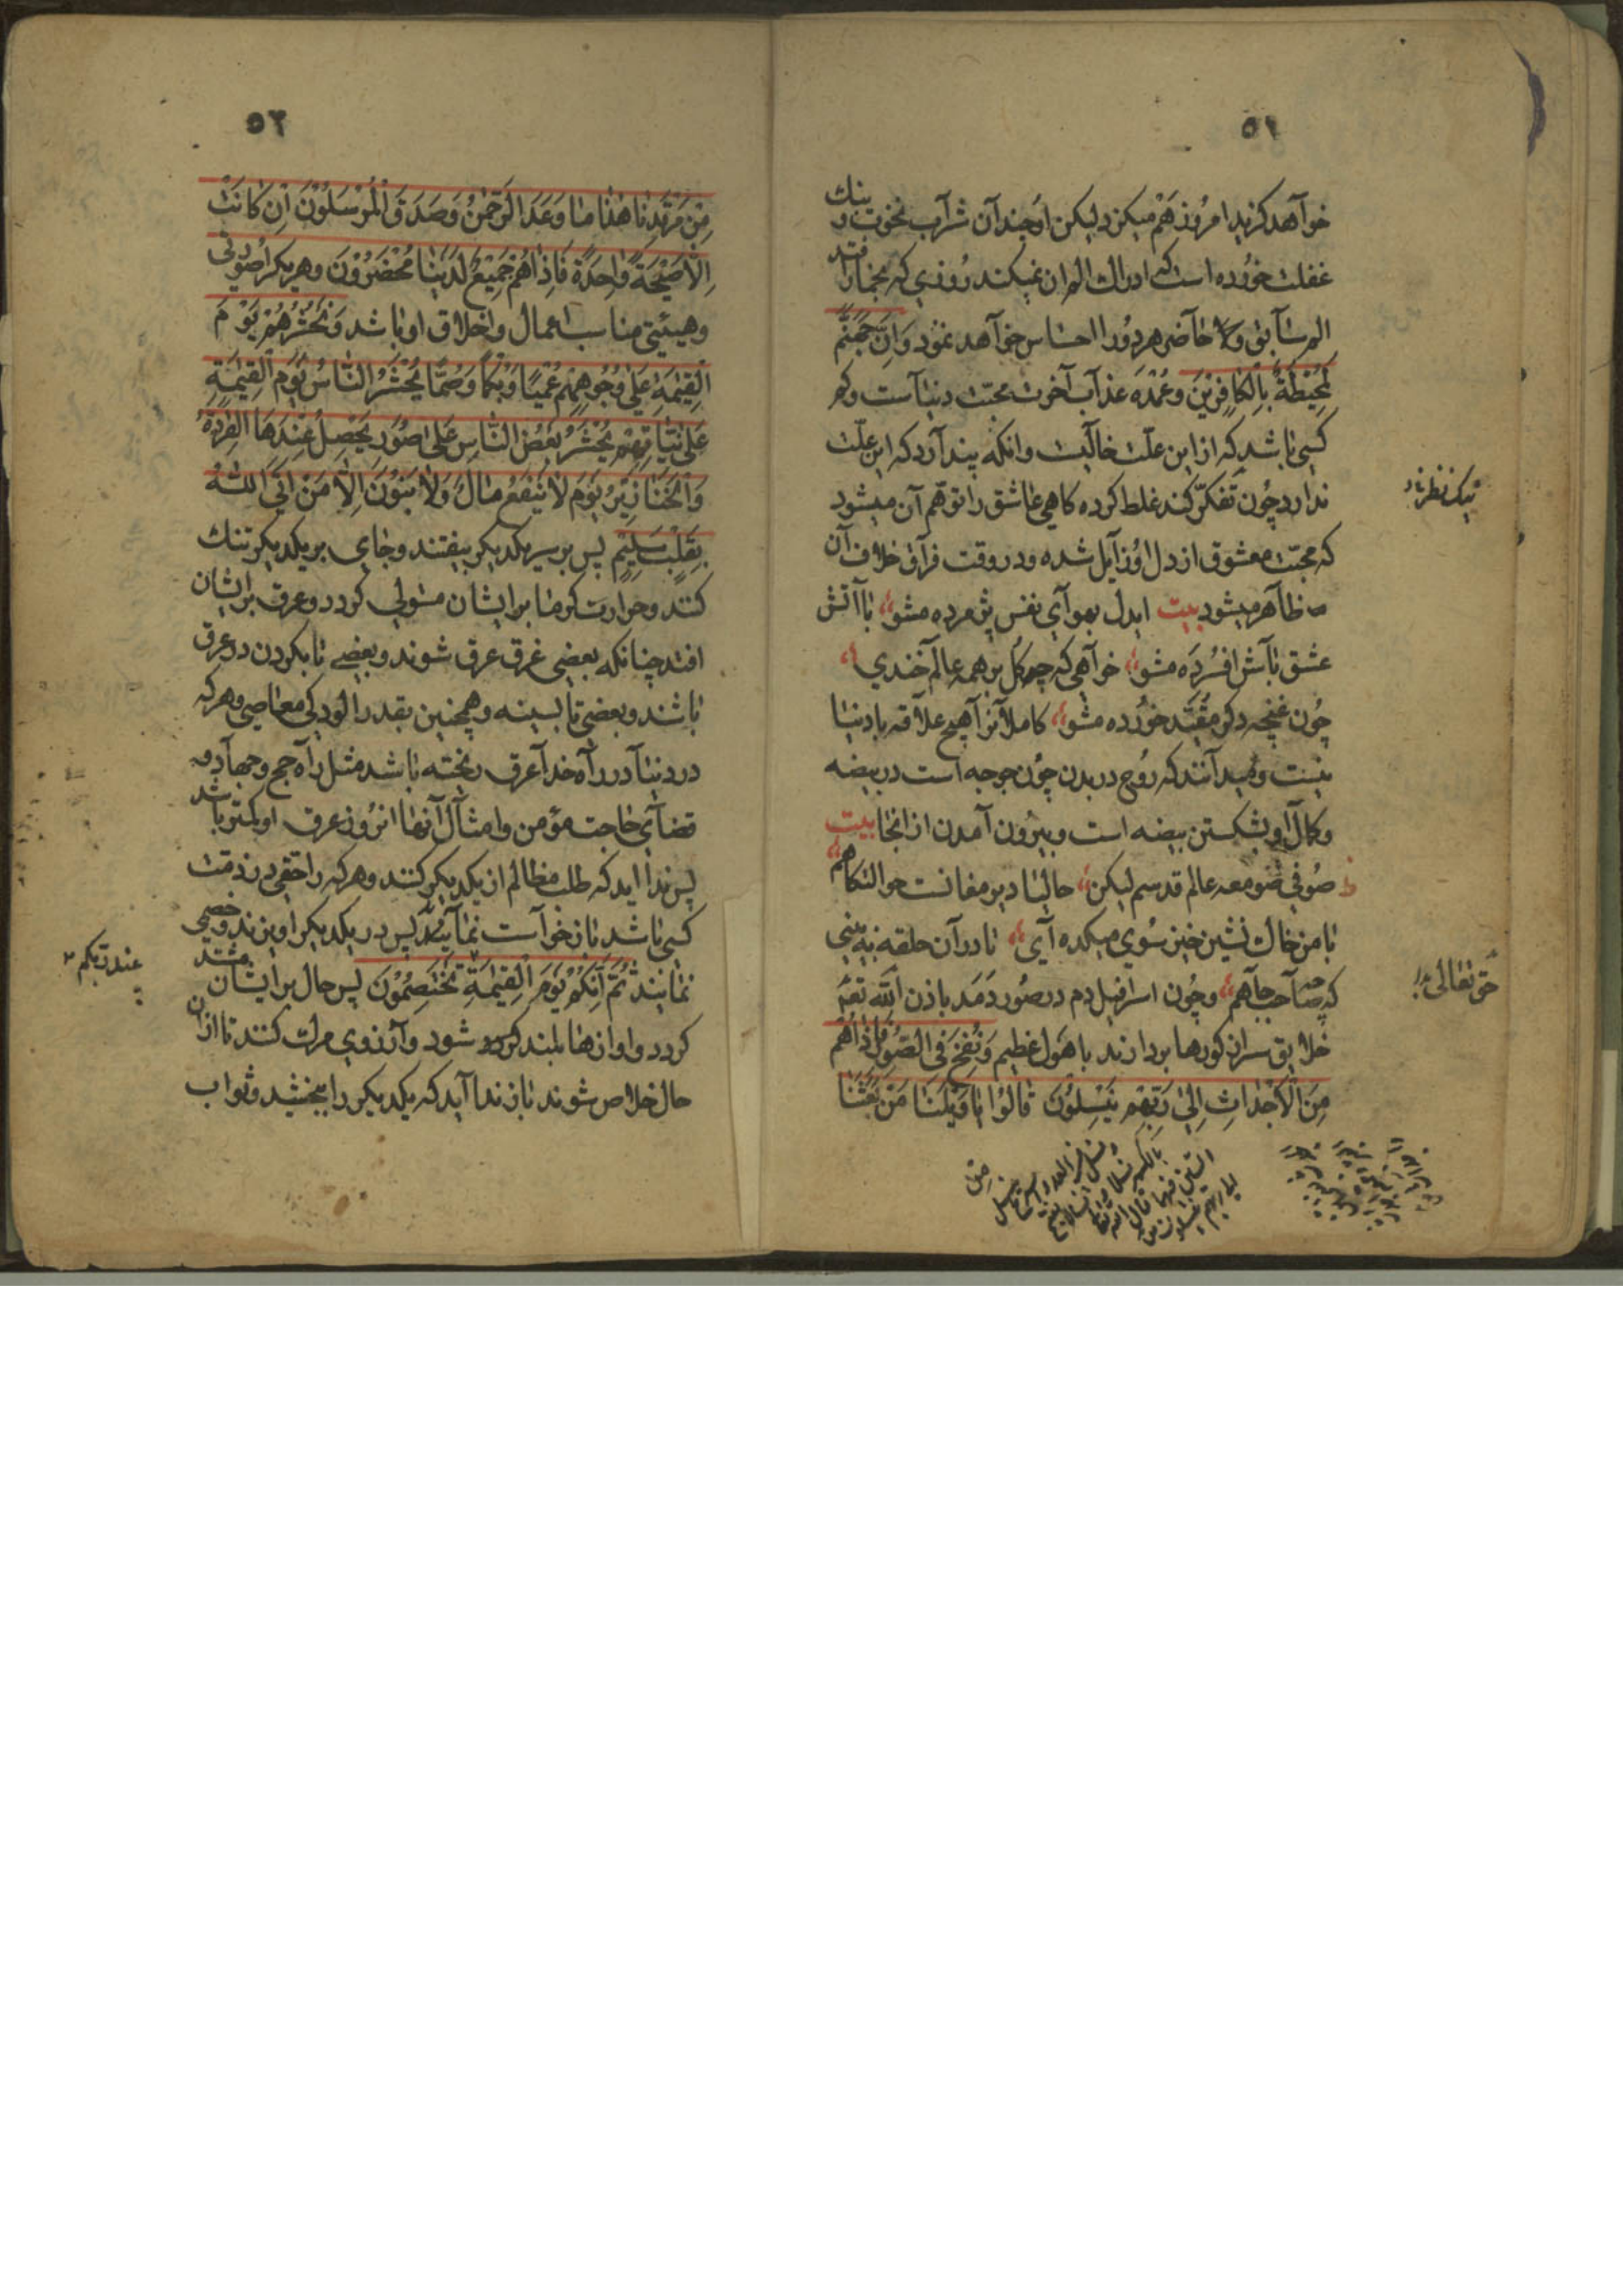 ٥١
خواهد کزید امروز هم میکزد لیکن او چندان شراب نخوت و بنک
غفلت خورده است که ادراك الم ان نمیکند روزی که بخمار افتد
الم سابق و لاحاضر هر دو را احساس خواهد نمود وَاِنَّ جَهَنَّمَ
لَمُحِیْطَةٌ بِالْکافِرِیْنَ وعمده عذاب آخرت محبت دنیاست وکم
کسی باشد که از این علّت خالیست وانکه پندارد که این علّت
ندارد چون تفکّر کند غلط کرده کاهی عاشق را توهّم آن میشود
که محبّت معشوق از دل او زایل شده و در وقت فراق خلاف آن
ظاهر میشود بیت ایدل بهوای نفس پژمرده مشو با آتش
عشق باش افسُرده مشو خواهی که چو کل بر همه عالم خندی
چون غنچه دکر مقیّد خورده مشو کاملانرا هیچ علاقه با دنیا
نیست ومیدانند که روح در بدن چون جوجه است در بیضه
وکمال او بشکستن بیضه است وبیرون آمدن از انجا بیت
صوفی صومعه عالم قدسم لیکن حالیا دیر مغانست حوالتکاهم
با من خاك نشین خیز سوی میکده آی تا در آن حلقه به بینی
که چه صاحب جاهم وچون اسرافیل دم در صور دمد باذن الله تعم
خلایق سر از کورها بردارند با هول عظیم وَنُفِخَ فِی الصُّورِ فَاِذاهُمْ
مِنَ الْاَجْداثِ اِلیٰ رَبِّهِمْ یَنْسِلُونَ قالُوْا یا وَیْلَنا مَنْ بَعَثَنا
حق تعالی
مِن
٥٢
مِنْ مَرْقَدِنا هٰذا ما وَعَدَ الرَّحْمٰنُ وَصَدَقَ الْمُرْسَلُوْنَ اِنْ کانَتْ
اِلّا صَیْحَةً واحِدَةً فَاِذاهُمْ جَمیْعٌ لَدَیْنا مُحْضَرُوْنَ وهر یکرا صورتی
وهیئتی مناسب اعمال واخلاق او باشد وَنَحْشُرُهُمْ یَوْمَ
الْقِیٰمَةِ عَلیٰ وُجُوهِهِمْ عُمْیًا وَبُکْمًا وَصُمًّا یُحْشَرُ النّاسُ یَوْمَ الْقِیٰمَةِ
عَلیٰ نِیّاتِهِمْ یُحْشَرُ بَعْضُ النّاسِ عَلیٰ صُوَرٍ یَحْصِلُ عِنْدَهَا الْقِرَدَةُ
وَالْخَنازِیْرُ یَوْمَ لا یَنْفَعُ مالٌ وَلا بَنُوْنَ اِلّا مَنْ اَتَی اللهَ
بِقَلْبٍ سَلِیْمٍ پس بر سر یکدیکر بیفتند وجای بر یکدیکر تنك
کنند وحرارت کرما بر ایشان مستولی کردد وعرق بر ایشان
افتد چنانکه بعضی غرق عرق شوند وبعضی تا بکردن در عرق
باشند وبعضی تا بسینه وهمچنین بقدر الودکی معاصی وهر که
در دنیا در راه خدا عرق ریخته باشد مثل راه حج وجهاد و
قضای حاجت مؤمن وامثال آنها انروز عرق او کمتر باشد
پس ندا اید که طلب مظالم از یکدیکر کنند وهر که را حقی در ذمّت
کسی باشد باز خواست نماید پس در یکدیکر اویزند وخصمی
نمایند ثُمَّ اِنَّکُمْ یَوْمَ الْقِیٰمَةِ تَخْتَصِمُوْنَ پس حال بر ایشان مشتد
کردد واوازها بلند کردد شود وآرزوی مرك کنند تا از ان
حال خلاص شوند باز ندا آید که یکدیکر را ببخشید وثواب
عند ربکم